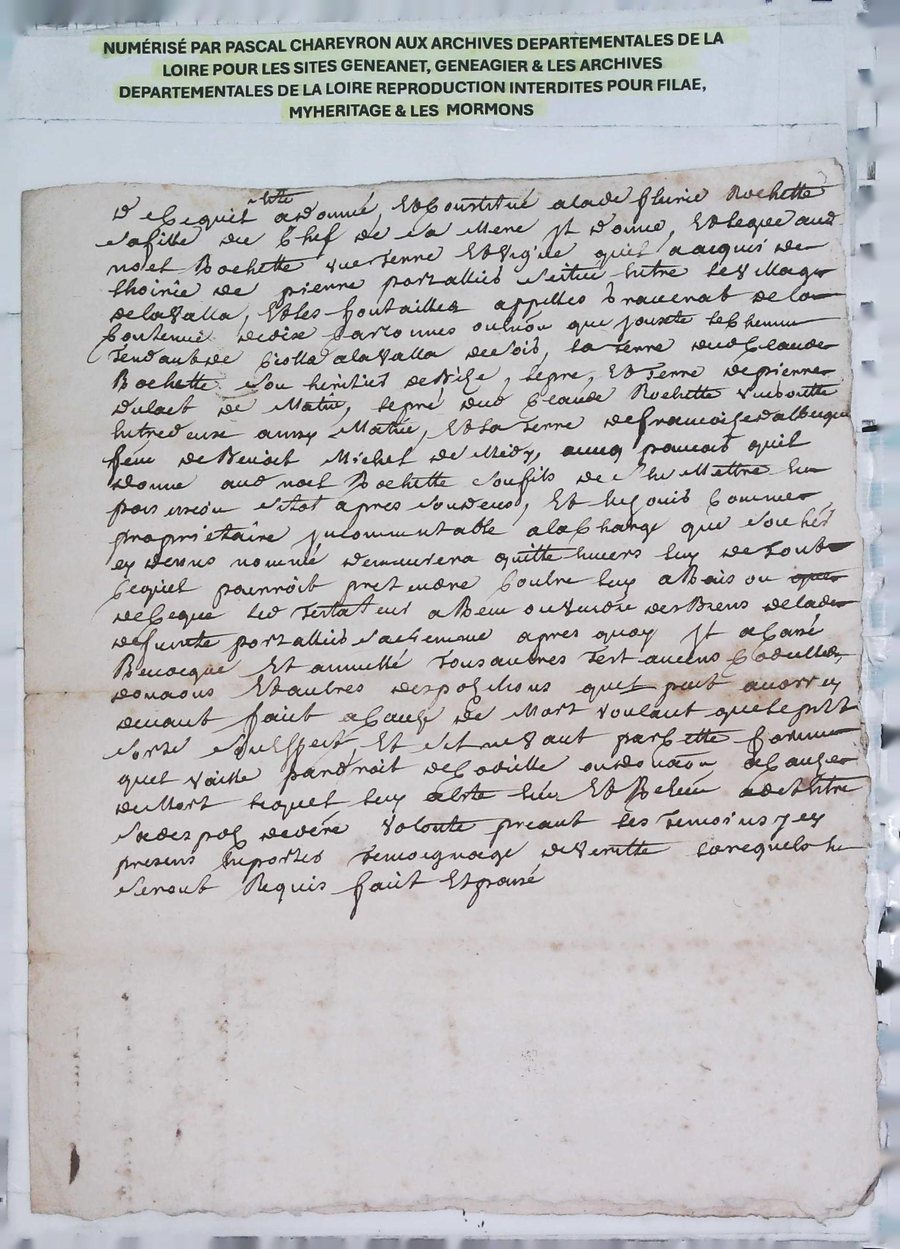 NUMÉRISÉ PAR PASCAL CHAREYRON AUX ARCHIVES DEPARTEMENTALES DE LA
LOIRE POUR LES SITES GENEANET, GENEAGIER & LES ARCHIVES
DEPARTEMENTALES DE LA LOIRE REPRODUCTION INTERDITES POUR FILAE,
MYHERITAGE & LES MORMONS
de Cequil a donné, Et Constitué a lade fleurie Rochette
sa fille du Chef de sa Mere Jt donne, Et legue aud
noel Rochette une terre Et vigne quil a acquis de
thoirie de pierre portallier scitué Entre le village
de lavalla, Et les fontailles appellés de la
Contenue de dix Cartonnes ou Environ que Jouxte le Chemin
tendant de a lavalla de soir, la terre dud Claude
Rochette ou héritiers de bize, le pré, Et terre de pierre
de Matin, le pré dud Claude Rochette
Entre deux aussy Matin, Et la terre de francoise
feue de Benoit Michel de Midy,
donne aud noel Rochette son fils de sen Mettre En
possession sitot apres son deces, Et En Jouir Comme
propriétaire Jncommutable a la Charge que son her
ey dessus nommé demeurera quitte Envers luy de tout
Cequil pourroit pretendre Contre luy a Raison
de Ceque led testateur a Reçu ou vendu des Biens de lade
deffunte portallier sa femme apres quoy Jt a Cassé
Revocque Et annullé tous autres testaments Codicilles
donnaons Et autres despositions quil peut avoir ey
devant fait a Cause de Mort voulant que le pnt
sorte son Effect, Et sil ne vaut par Cette forme
quil vaille par droit de Codicille ou donnaon a Cause
de Mort lequel luy a Esté leu Et Releu
sa despon de dere volonté priant les temoins
presens En porter temoignage de veritte lorequels En
seront Requis fait Et passé